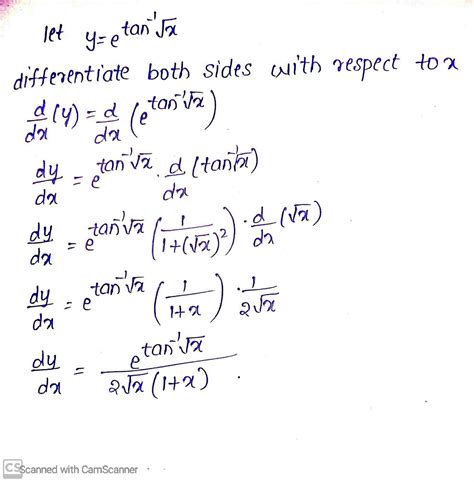 let y=e^{tan^{-1}√x}
differentiate both sides with respect to x
d/dx (y) = d/dx (e^{tan^{-1}√x})
dy/dx = e^{tan^{-1}√x} . d/dx (tan^{-1}√x)
dy/dx = e^{tan^{-1}√x} (1/(1+(√x)^2)) . d/dx (√x)
dy/dx = e^{tan^{-1}√x} (1/(1+x)) . 1/(2√x)
dy/dx = e^{tan^{-1}√x}/(2√x (1+x)) .
CS Scanned with CamScanner